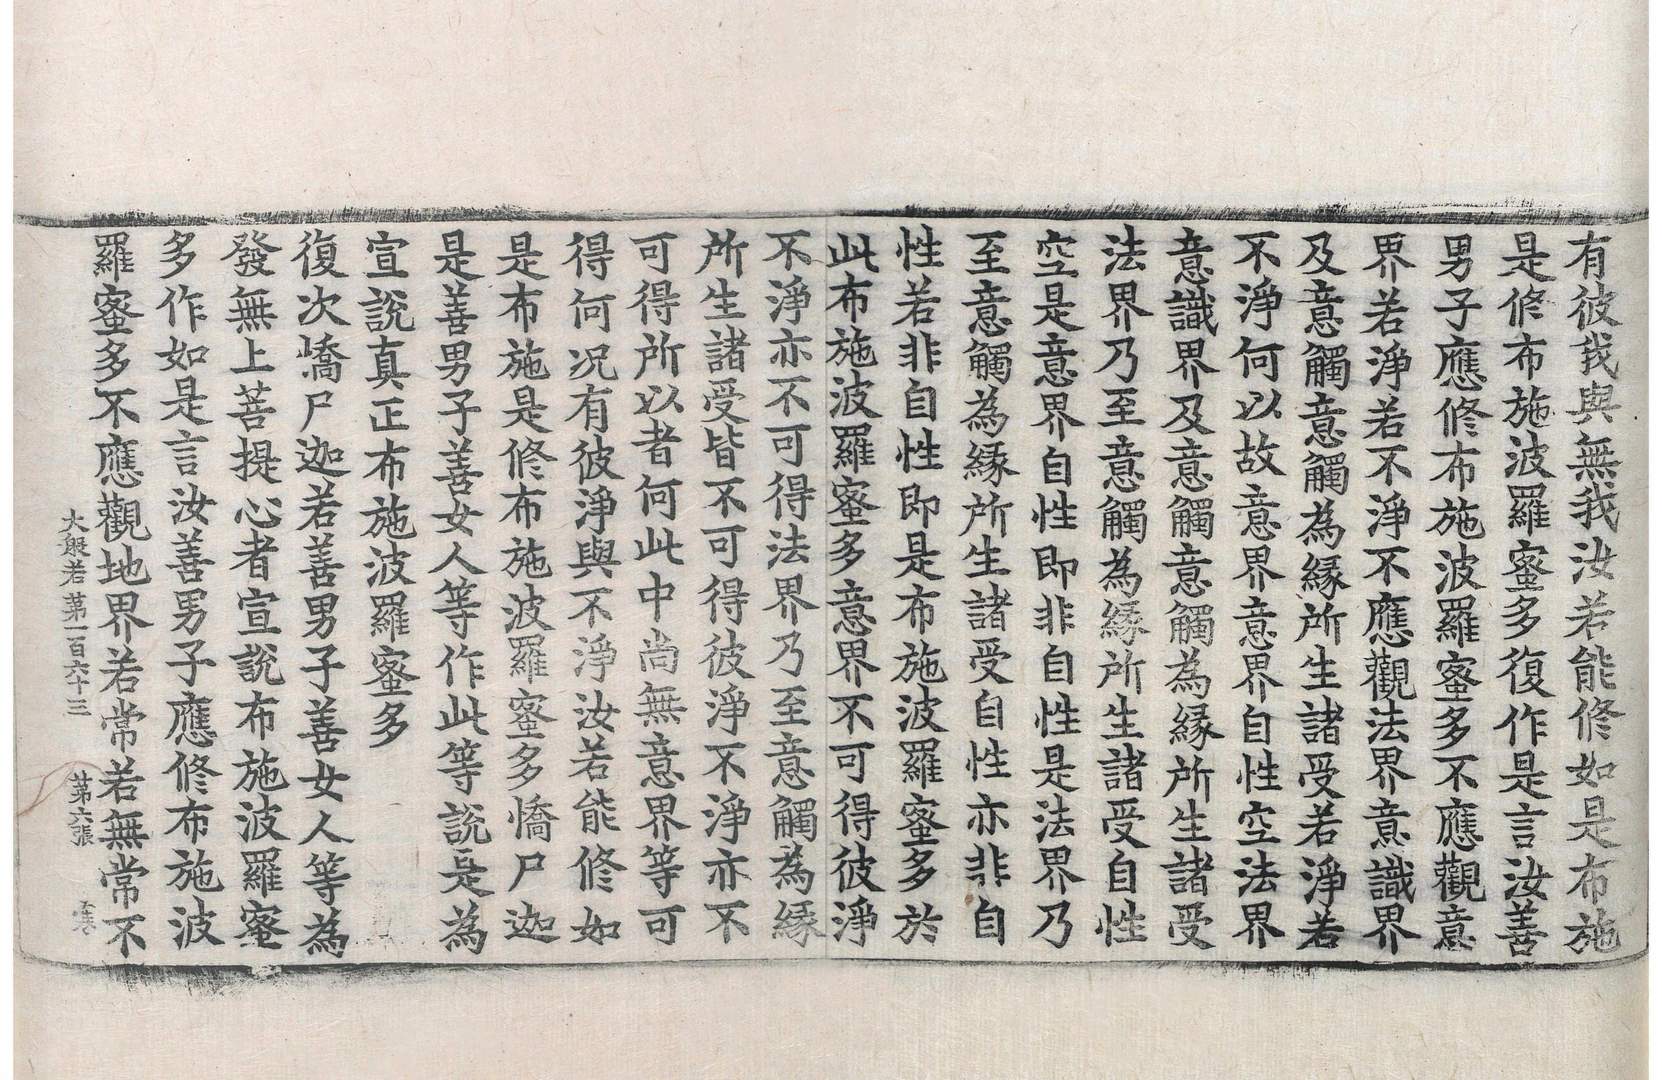 有彼我與無我汝若能修如是布施
是修布施波羅蜜多復作是言汝善
男子應修布施波羅蜜多不應觀意
界若淨若不淨不應觀法界意識界
及意觸意觸為緣所生諸受若淨若
不淨何以故意界意界自性空法界
意識界及意觸意觸為緣所生諸受
法界乃至意觸為緣所生諸受自性
空是意界自性即非自性是法界乃
至意觸為緣所生諸受自性亦非自
性若非自性即是布施波羅蜜多於
此布施波羅蜜多意界不可得彼淨
不淨亦不可得法界乃至意觸為緣
所生諸受皆不可得彼淨不淨亦不
可得所以者何此中尚無意界等可
得何况有彼淨與不淨汝若能修如
是布施是修布施波羅蜜多憍尸迦
是善男子善女人等作此等說是為
宣說真正布施波羅蜜多
復次憍尸迦若善男子善女人等為
發無上菩提心者宣說布施波羅蜜
多作如是言汝善男子應修布施波
羅蜜多不應觀地界若常若無常不
大般若第一百六十三 第六張 寒